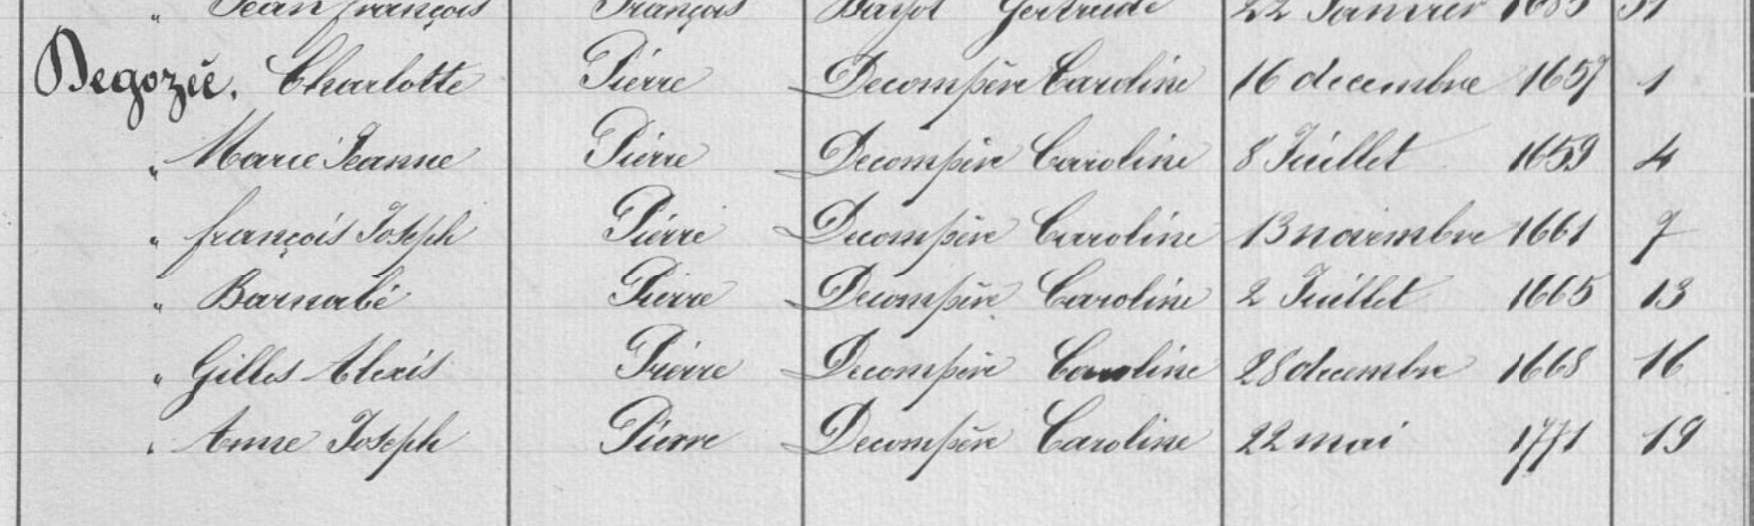 " Jean françois François Bayot Gertrude 22 Janvier 1685 31
Degozée. Charlotte Pierre Decompère Caroline 16 decembre 1657 1
" Marie Jeanne Pierre Decompère Caroline 8 Juillet 1659 4
" françois Joseph Pierre Decompère Caroline 13 novembre 1661 7
" Barnabé Pierre Decompère Caroline 2 Juillet 1665 13
" Gilles Alexis Pierre Decompère Caroline 28 decembre 1668 16
" Anne Joseph Pierre Decompère Caroline 22 mai 1771 19